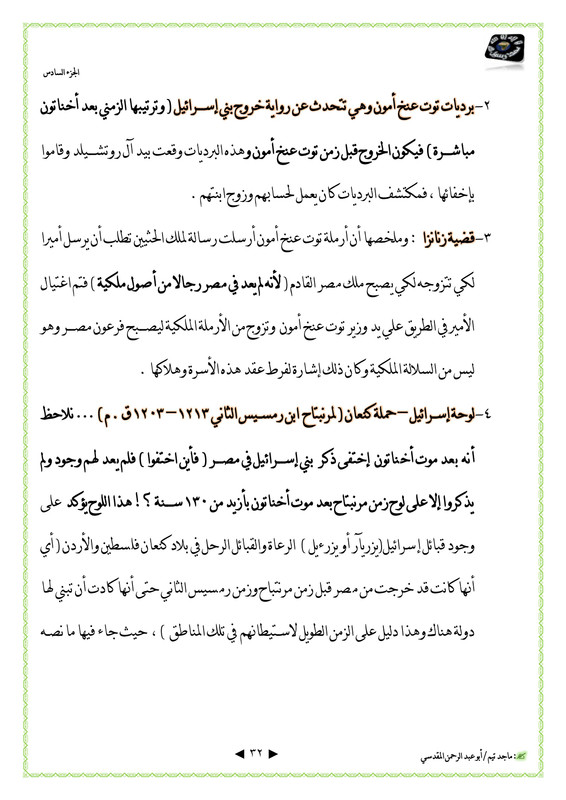 الجزء السادس
٢- برديات توت عنخ أمون وهي تتحدث عن رواية خروج بني إسرائيل ( وترتيبها الزمني بعد أخناتون
مباشرة ) فيكون الخروج قبل زمن توت عنخ أمون وهذه البرديات وقعت بيد آل روتشيلد وقاموا
بإخفائها ، فمكتشف البرديات كان يعمل لحسابهم وزوج ابنتهم .
٣- قضية زنانزا : وملخصها أن أرملة توت عنخ أمون أرسلت رسالة لملك الحثيين تطلب أن يرسل أميرا
لكي تتزوجه لكي يصبح ملك مصر القادم ( لأنه لم يعد في مصر رجالا من أصول ملكية ) فتم اغتيال
الأمير في الطريق علي يد وزير توت عنخ أمون وتزوج من الأرملة الملكية ليصبح فرعون مصر وهو
ليس من السلالة الملكية وكان ذلك إشارة لفرط عقد هذه الأسرة وهلاكها .
٤- لوحة إسرائيل – حملة كنعان ( لمرنبتاح ابن رمسيس الثاني ١٢١٣ – ١٢٠٣ ق . م ) ... نلاحظ
أنه بعد موت أخناتون إختفى ذكر بني إسرائيل في مصر ( فأين اختفوا ) فلم يعد لهم وجود ولم
يذكروا إلا على لوح زمن مرنبتاح بعد موت أخناتون بأزيد من ١٣٠ سنة ؟ ! هذا اللوح يؤكد على
وجود قبائل إسرائيل (يزريآر أو يزرءيل ) الرعاة والقبائل الرحل في بلاد كنعان فلسطين والأردن ( أي
أنها كانت قد خرجت من مصر قبل زمن مرنبتاح وزمن رمسيس الثاني حتى أنها كادت أن تبني لها
دولة هناك وهذا دليل على الزمن الطويل لاستيطانهم في تلك المناطق ) ، حيث جاء فيها ما نصه
٣٢
: ماجد تيم / أبو عبد الرحمن المقدسي